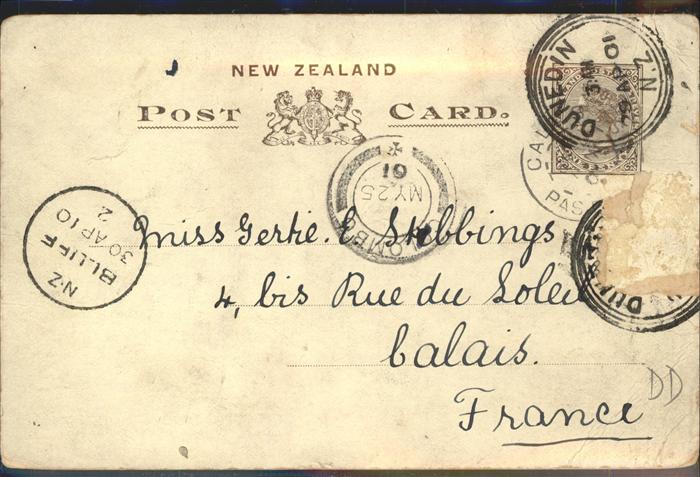 NEW ZEALAND
POST CARD.
DUNEDIN N.Z
29 AP 01
01
MY 25
OMB
NZ BLUFF
30 AP 10
2
CAL
PAS
DUN
Miss Gertie. E. Stebbings
4, bis Rue du Soleil
Calais.
France
DD